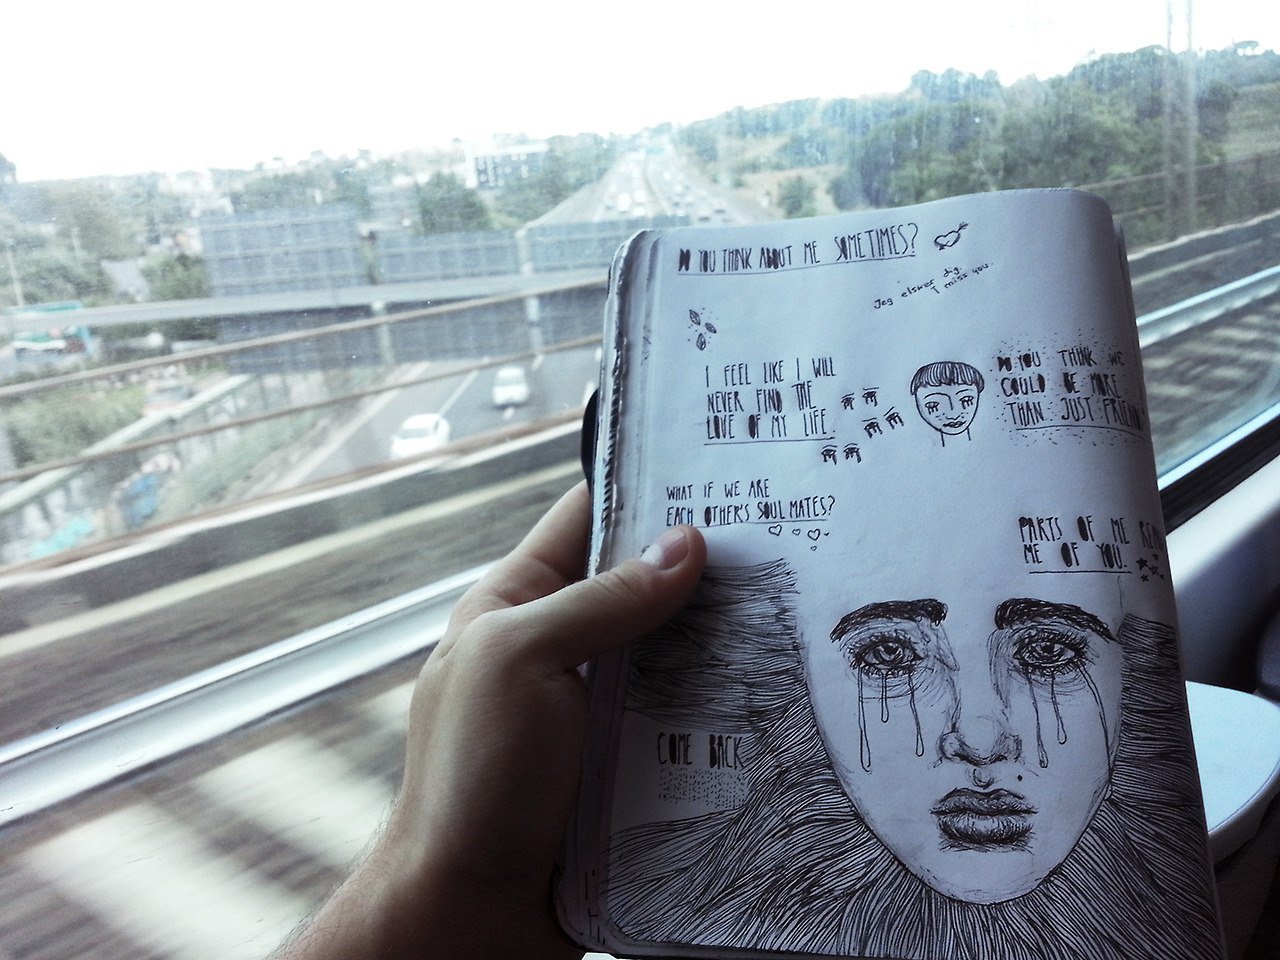 DO YOU THINK ABOUT ME SOMETIMES?
Jeg elsker dig.
I miss you.
I FEEL LIKE I WILL
NEVER FIND THE
LOVE OF MY LIFE.
DO YOU THINK WE
COULD BE MORE
THAN JUST FRIEN
WHAT IF WE ARE
EACH OTHER'S SOUL MATES?
PARTS OF ME REM
ME OF YOU.
COME BACK